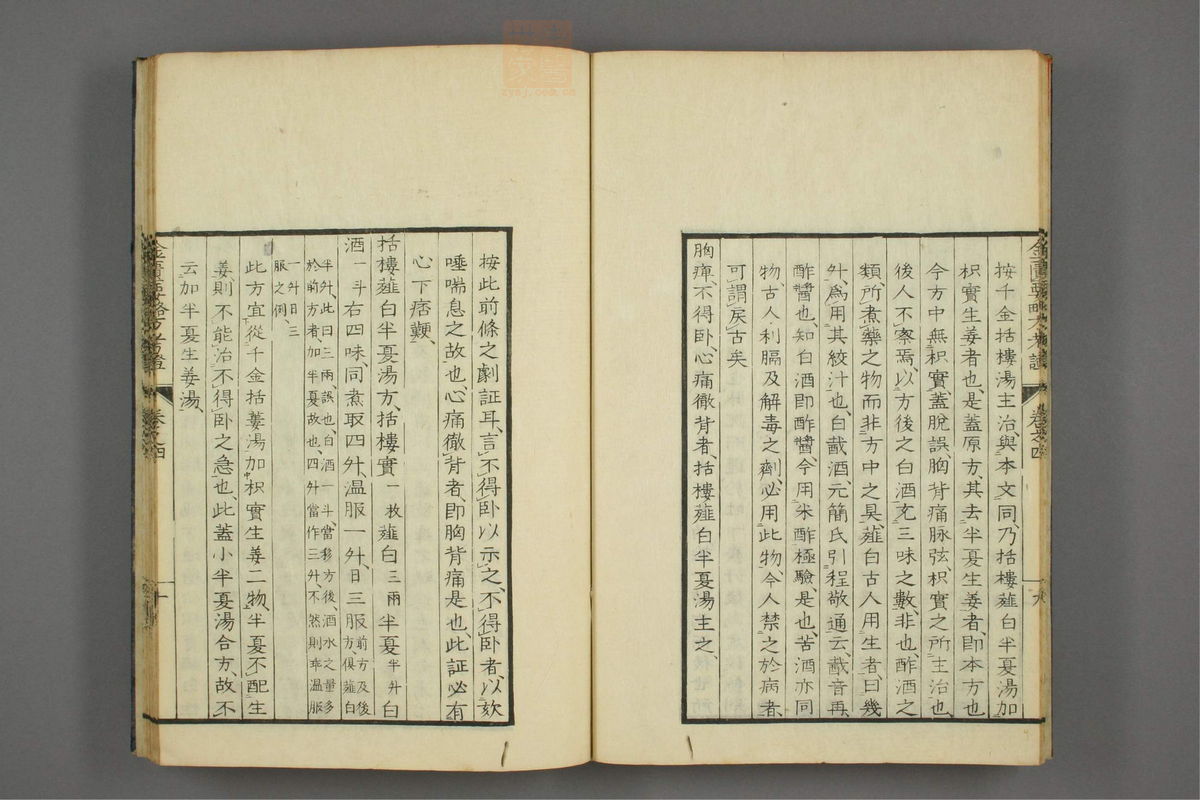 金匱要略方考證 卷之四 九
按千金栝樓湯主治與本文同、乃栝樓薤白半夏湯加
枳實生姜者也、是蓋原方、其去半夏生姜者、即本方也
今方中無枳實蓋脫誤、胸背痛脉弦、枳實之所主治也、
後人不察焉、以方後之白酒充三味之數、非也、酢酒之
類、所煮藥之物而非方中之具、薤白古人用生者、曰幾
升、爲用其絞汁也、白酨酒、元簡氏引程敬通云、酨音再、
酢醬也、知白酒即酢醬、今用米酢極驗、是也、苦酒亦同
物、古人利膈及解毒之劑、必用此物、今人禁之於病者、
可謂戾古矣
胸痺、不得卧、心痛徹背者、栝樓薤白半夏湯主之、
按此前條之劇証耳、言不得卧以示之、不得卧者、以欬
唾喘息之故也、心痛徹背者、即胸背痛是也、此証必有
心下痞鞕、
栝樓薤白半夏湯方、栝樓實一枚薤白三兩半夏半升白
酒一斗右四味、同煮取四升、温服一升、日三服前方及後方、俱薤白
半升、此曰三兩、誤也、白酒一斗、當移方後、酒水之量多
於前方者、加半夏故也、四升當作三升、不然則乖温服
一升日三
服之例、
此方宜從千金栝蔞湯加枳實生姜二物、半夏不配生
姜則不能治不得卧之急也、此蓋小半夏湯合方、故不
云加半夏生姜湯、
金匱要略方考證 卷之四 十